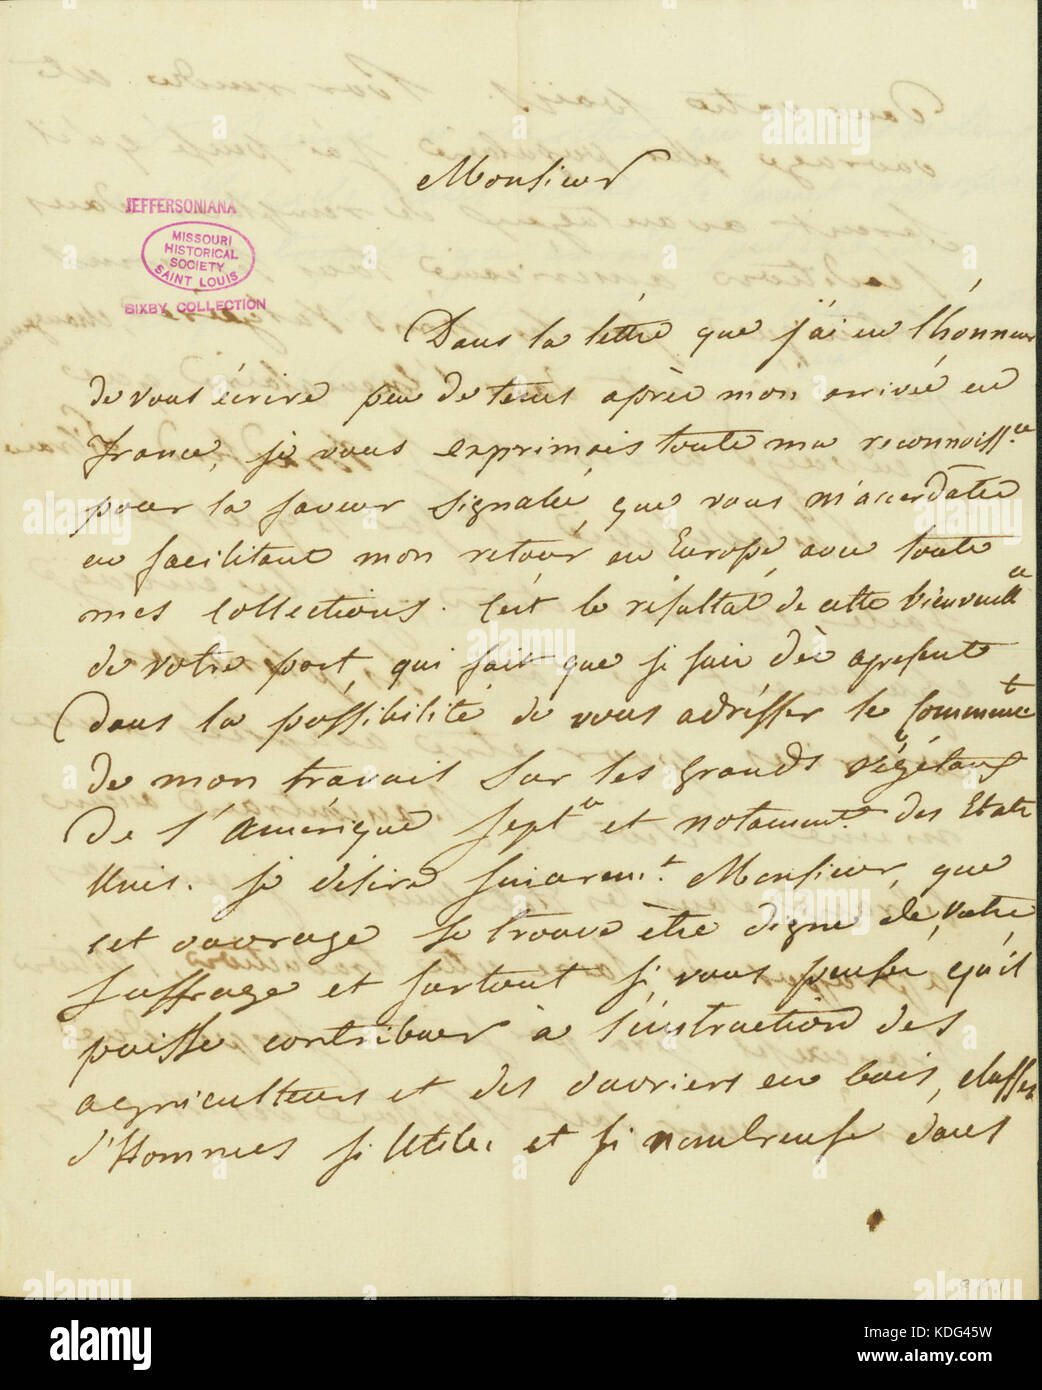 Monsieur
JEFFERSONIANA
MISSOURI
HISTORICAL
SOCIETY
SAINT LOUIS
BIXBY COLLECTION
Dans la léttre que j'ai eu l'hónneur
de vous écrire peu de tems après mon arrivée en
france, je vous exprimais toute ma reconnoissce
pour la faveur signalée, que vous m'accordates
en facilitant mon retour en Europe, avec toute
mes Collections. C'est le résultat de cette bienveillce
de votre part, qui fait que je suis dès apresent
Dans la possibilité de vous adrésser le Commencet
de mon travail sur les grands végétaux
De l'amérique septle et notament des Etats
Unis. je désire sincaremt. Monsieur, que
cet ouvrage se trouve être digne de votre
suffrage et surtout si vous pensé qu'il
puisse contribuer à l'instruction des
agriculteurs et des ouvriers en bois, classes
d'Hommes si Utiles et si nombreuse dans
alamy
Image ID: KDG45W
www.alamy.com